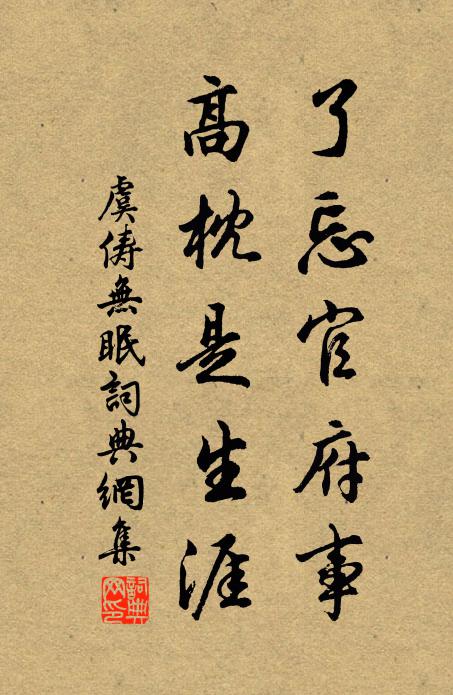 了忘官府事
高枕是生涯
虞俦無眠詞典網集
詞典网印